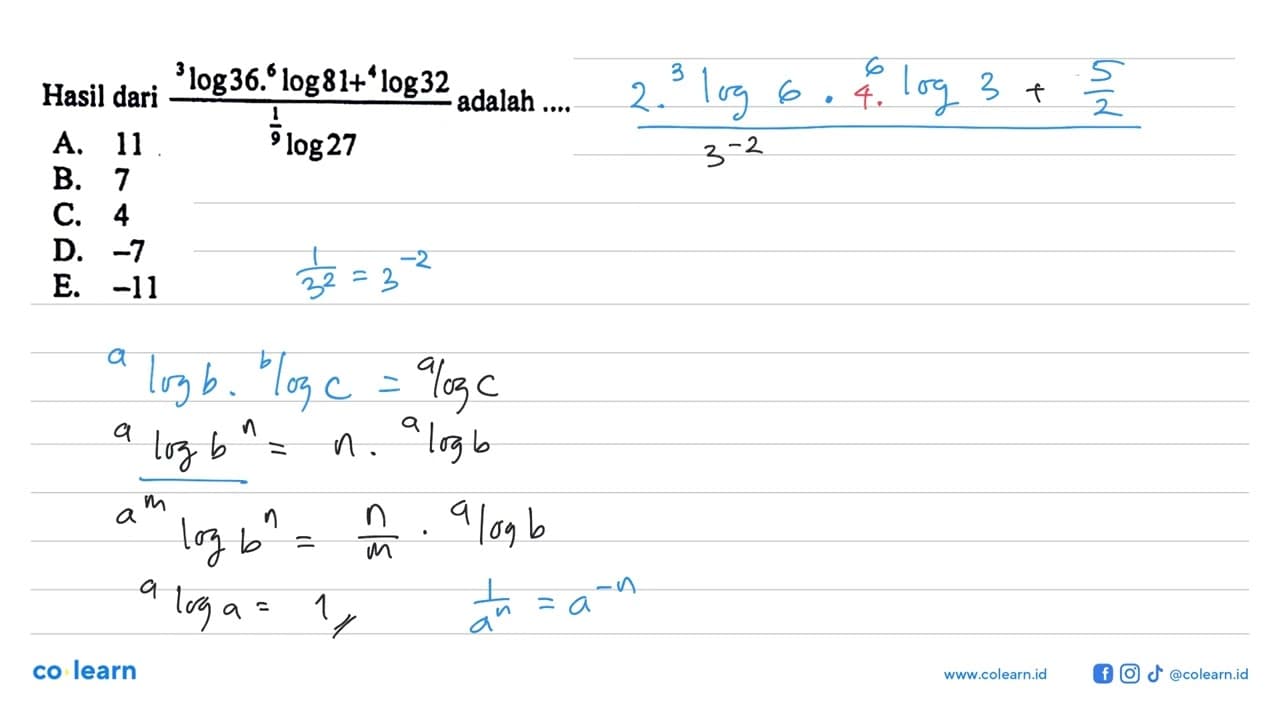 Hasil dari \frac{^3log36.^6log81+^4log32}{^{\frac{1}{9}}log27} adalah ....
A. 11
B. 7
C. 4
D. –7
E. –11
\frac{2.^3log 6 . 4.^6log 3 + \frac{5}{2}}{3^{-2}}
\frac{1}{3^2} = 3^{-2}
^alog b . ^blog c = ^alog c
^alog b^n = n . ^alog b
^{a^m}log b^n = \frac{n}{m} . ^alog b
^alog a = 1
\frac{1}{a^n} = a^{-n}
co learn
www.colearn.id
@colearn.id